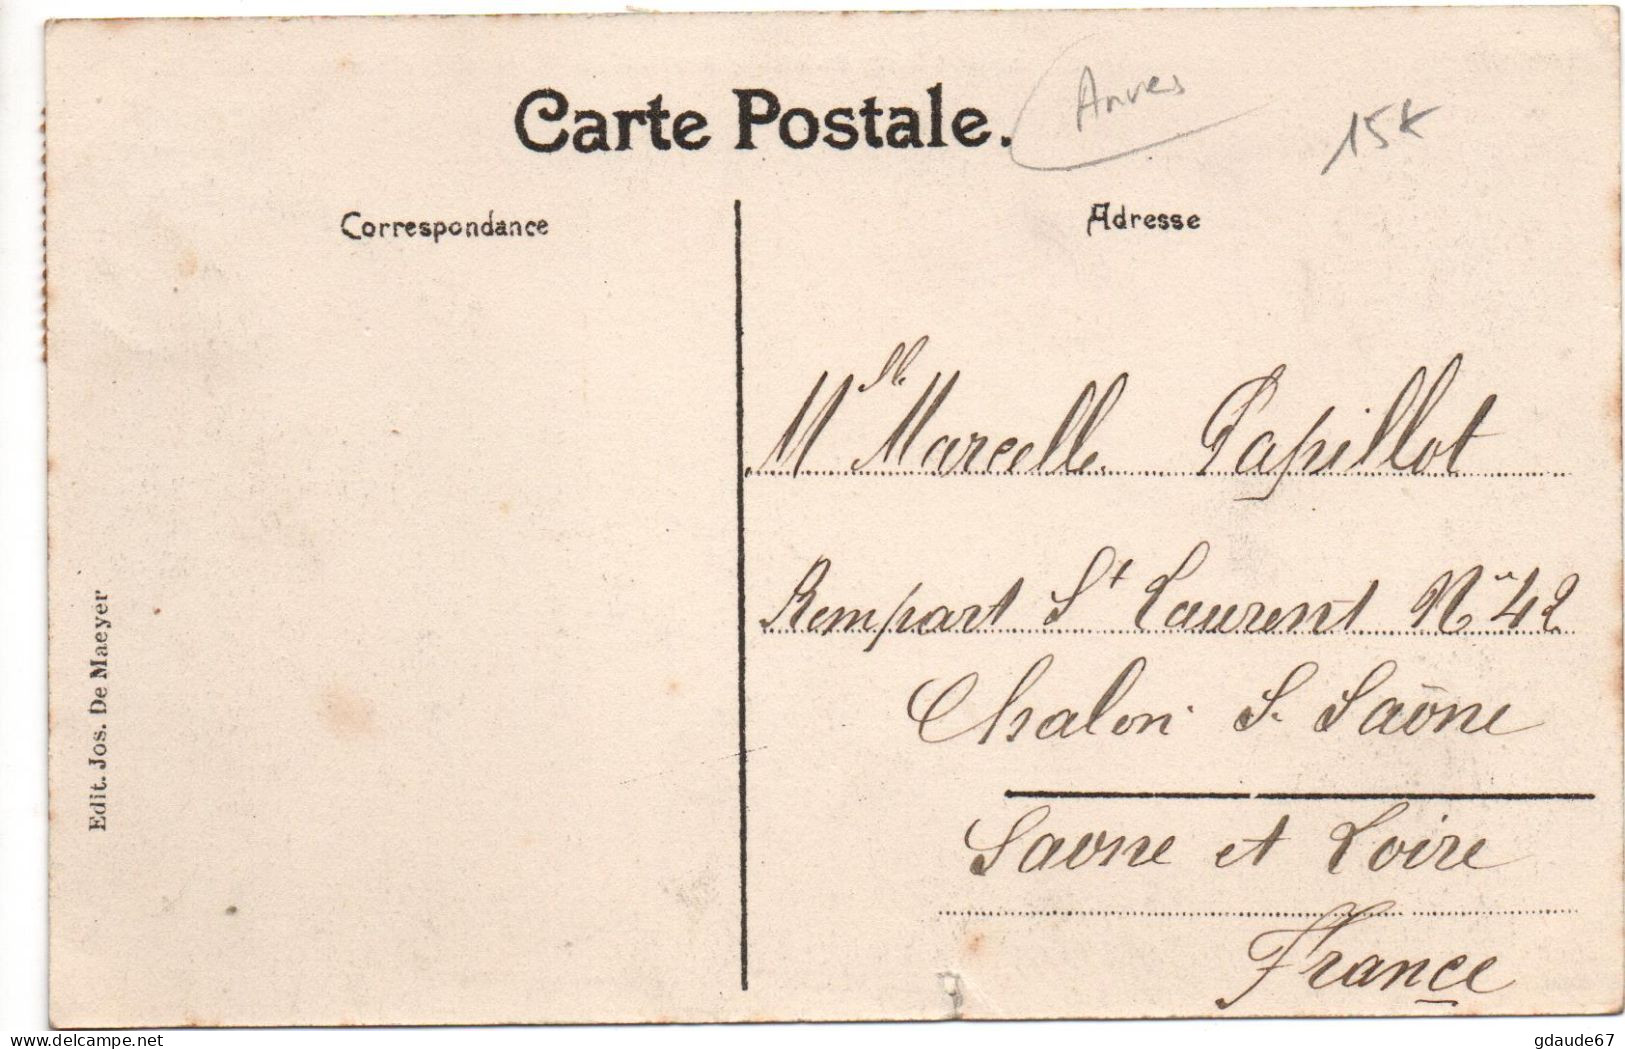 Carte Postale.
Anvers
15K
Correspondance
Adresse
Mlle Marcelle Papillot
Rempart St Laurent No 42
Chalon S. Saône
Saone et Loire
France
Edit. Jos. De Maeyer
delcampe.net
gdaude67